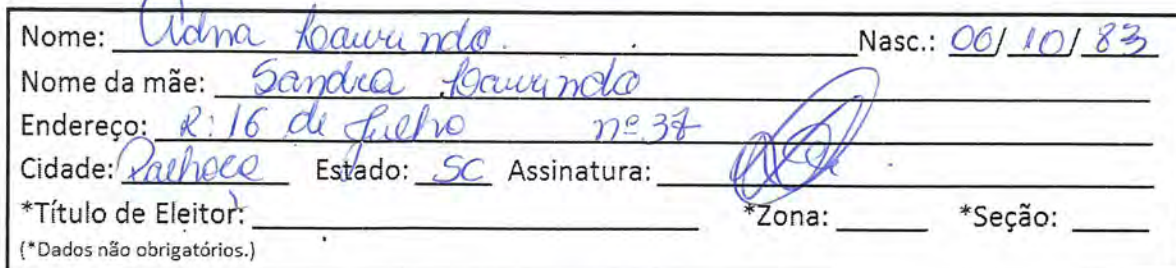 Nome: Adna Laurindo. Nasc.: 06/10/83
Nome da mãe: Sandra Laurindo
Endereço: R: 16 de Julho nº 37
Cidade: Palhoça Estado: SC Assinatura:
*Título de Eleitor: *Zona: *Seção:
(*Dados não obrigatórios.)